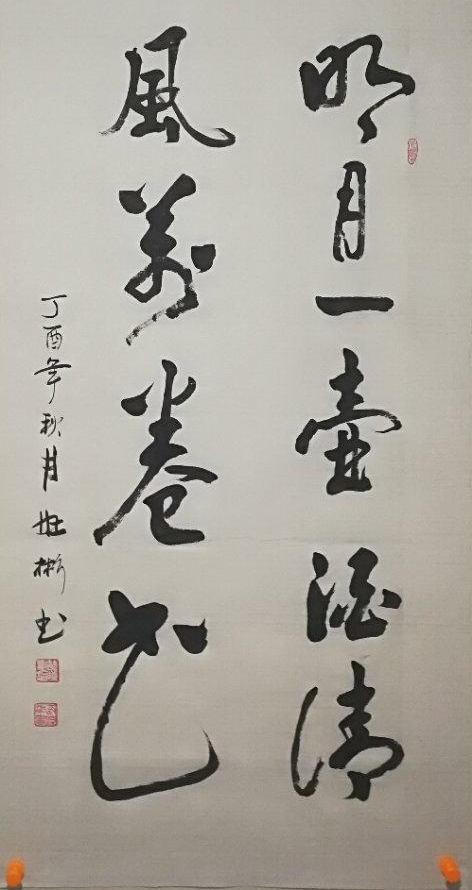 明月一壺酒清
風萬卷书
丁酉年秋月 彬书